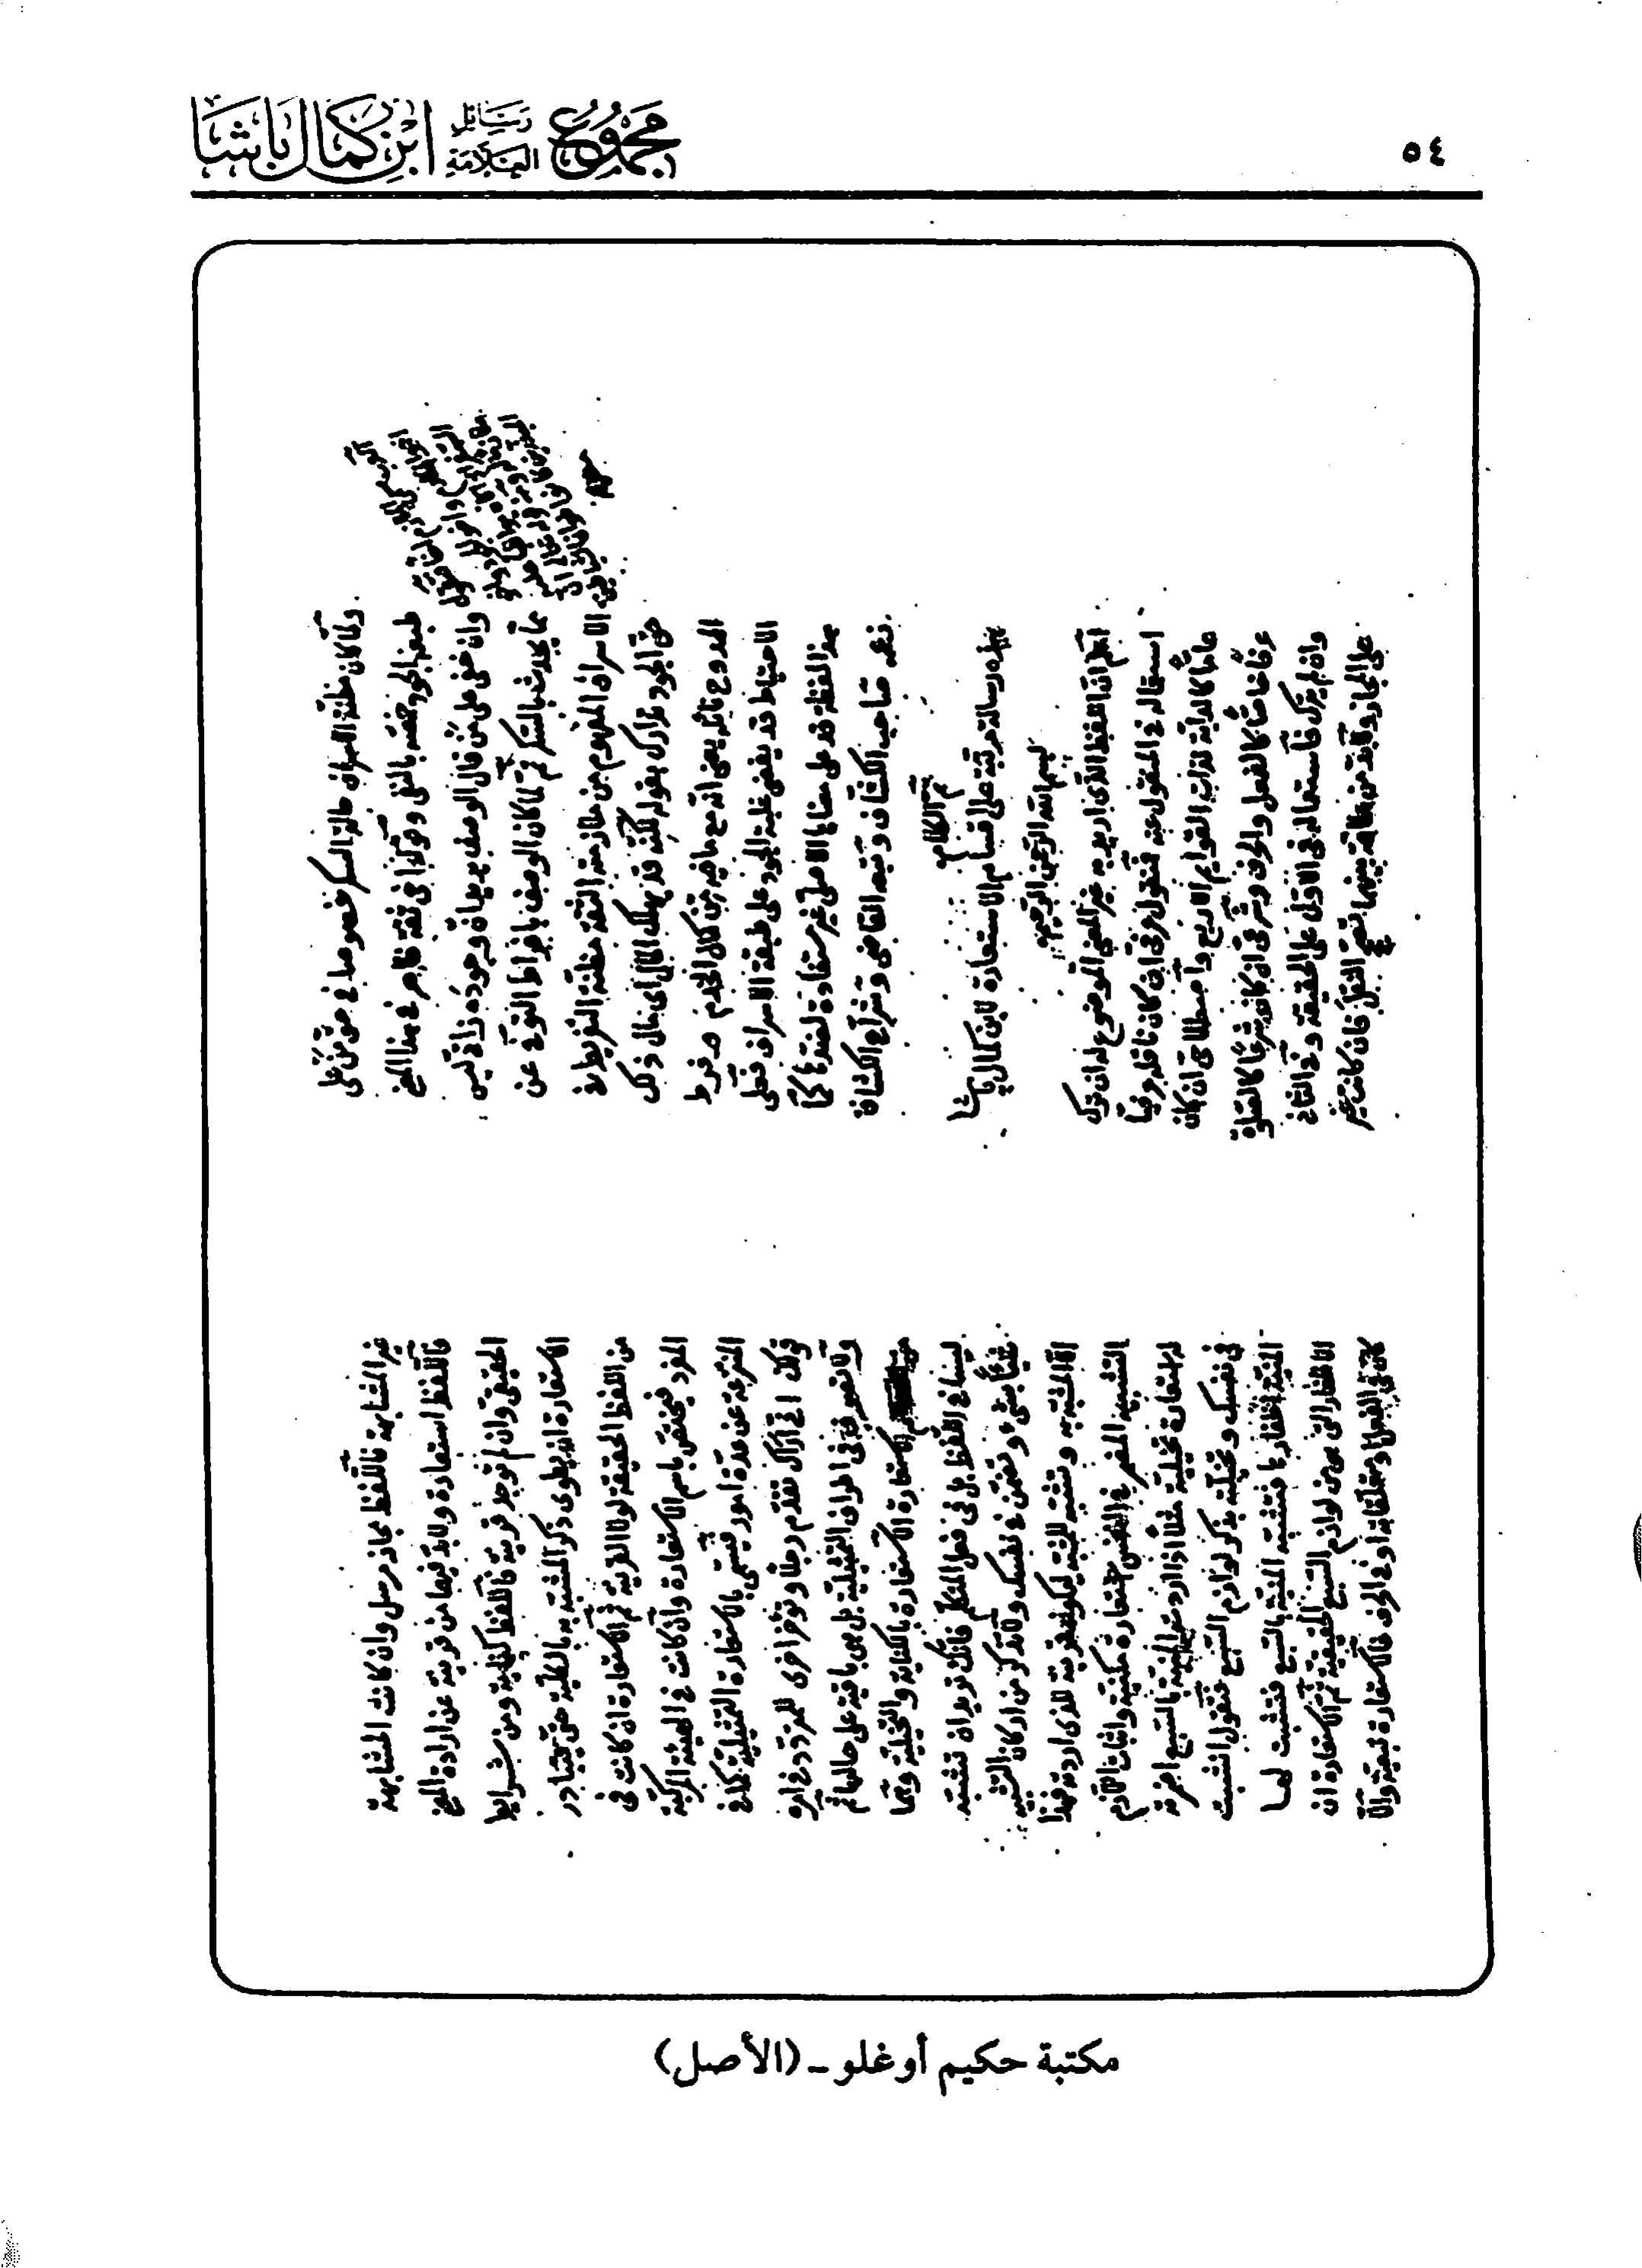 ٥٤
مجموع رسائل العلامة ابن كمال باشا
ولما كان مظنة السرف حالة السكر خصوصا في حق من على
طبعه الجود خصه بالنفي وهو كذا في نفقة ظاهر في هذا المعنى
وان خفي على من قال الوصف به بعيد وجوده ذاتي ليس
مما يحدث بالسكر ثم لما كان الوصف بافراط التوقي عن
الاسراف المفهوم من ملازمته الثقة مظنة التفريط في
حق الجود تدارك بقوله لكنه قد يهلك المال اي ينال ذلك
الممدوح نائله يعني انه مع ما فيه من كمال الحزم وفرط
الاحتياط قد يفضي غلبة الجود على طبقة الاسراف فعلى
هذا لفظة قد على معناها الاصلي غير مستفادة لضدها كما
زعمه صاحب الكشاف وتبعه القاضي وشراح الكشاف
تم الكلام
هذه رسالة مرتبة على اقسام الاستعارة لابن كمال پاشا
بسم الله الرحمن الرحيم
اعلم ان اللفظ الذي اريد به غير المعنى الموضوع له ان ترك
استعماله في المنقول عنه فمنقول عرفي ان كان ناقله عرفيا
عاما كالدابة لذات القوايم الاربع واصطلاحي ان كان
عرفا خاصا كالفعل والحرف وشرعي ان كان شرعا كالصلوة
وان لم يترك فاستعماله في الاول على الحقيقة وفي الثاني
على المجاز ولابد من علاقة بينهما تصحح النقل فان كانت غير
غير المشابهة فاللفظ مجاز مرسل وان كانت المشابهة
فاللفظ استعارة ولابد فيها من قرينة عن ارادة المعنى
الحقيقي وان لم توجد قرينة فاللفظ كناية ومن شرايط
الاستعارة ان يطوى ذكر المشبه به بالكلية حتى يتبادر
من اللفظ الحقيقة لولا القرينة ثم الاستعارة ان كانت في
المفرد فيختص باسم الاستعارة وان كانت في الهيئة المركبة
المنتزعة عن عدة امور فيسمى بالاستعارة التمثيلية كما في
قولك اني اراك تقدم رجلا وتؤخر اخرى للمتردد في امره
ولا تصرف في اطراف التمثيلية بل هي باقية على حالها ثم
من الاستعارة الاستعارة بالكناية والتخيلية وهما
ليسا في اللفظ بل في فعل المتكلم فانك تريد ان تشبه
شيئا بشيء وتضمن في نفسك ولا تذكر من اركان التشبيه
الا المشبه به وتثبت للمشبه ليكون قرينة للذي اردته فهذا
التشبيه المضمر في النفس استعارة مكنية واثبات اللازم
له استعارة تخيلية مثلا اذا اردت تشبيه المنية بالسبع اضمرته
في نفسك وتخيلته بذكر لوازم السبع فتقول انشبت
المنية اظفارها فتشبه المنية بالسبع فتثبت لها
الاظفار التي هي من لوازم السبع الحقيقية ثم الاستعارة ان
كانت في الفعل ومتعلقاته او في الحرف فالاستعارة تبعية والا
مكتبة حكيم أوغلو ـ (الأصل)